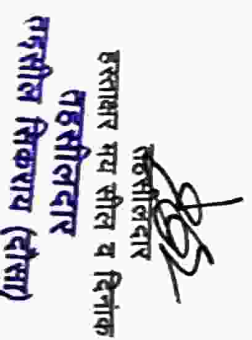 तहसीलदार
हस्ताक्षर मय सील व दिनांक
तहसीलदार
तहसील सिकराय (दौसा)